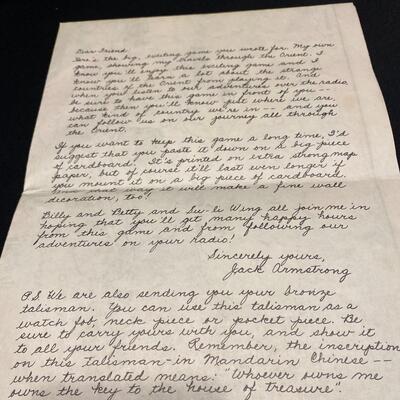 Dear Friend:
Here's the big, exciting game you wrote for. My own
game, showing my travels through the Orient. I
know you'll enjoy this exciting game and I
know you'll learn a lot about the strange
countries of the Orient from playing it. And
when you listen to our adventures over the radio
be sure to have this game in front of you --
because then you'll know just where we are,
what kind of country we're in -- and you
can follow us on our journey all through
the Orient.
If you want to keep this game a long time, I'd
suggest that you paste it down on a big piece
of cardboard. It's printed on extra strong map
paper, but of course it'll last even longer if
you mount it on a big piece of cardboard.
way it will make a fine wall
decoration, too!
Billy and Betty and Su-li Wing all join me in
hoping that you'll get many happy hours
from this game and from following our
adventures on your radio!
Sincerely yours,
Jack Armstrong
P.S. We are also sending you your bronze
talisman. You can use this talisman as a
watch fob, neck piece or pocket piece. Be
sure to carry yours with you, and show it
to all your friends. Remember, the inscription
on this talisman-in Mandarin Chinese --
when translated means: "Whoever owns me
owns the key to the house of treasure".